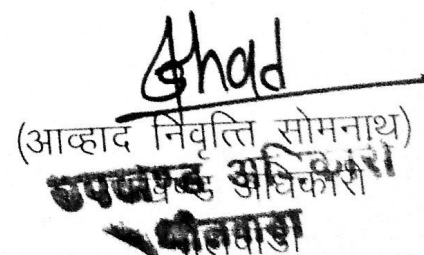 (आव्हाद निवृत्ति सोमनाथ)
उपखण्ड अधिकारी
भीलवाड़ा